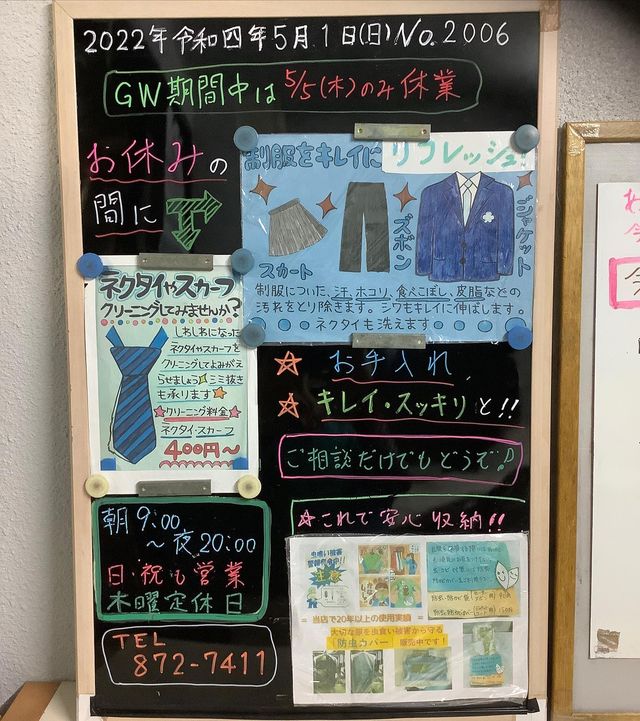 2022年令和四年5月1日(日)No.2006
GW期間中は5/5(木)のみ休業
お休みの
間に
制服をキレイにリフレッシュ!
スカート
ズボン
ジャケット
制服についた、汗、ホコリ、食べこぼし、皮脂などの
汚れをとり除きます。シワもキレイに伸ばします。
ネクタイも洗えます
ネクタイやスカーフ
クリーニングしてみませんか?
しわしわになった
ネクタイやスカーフを
クリーニングしてよみがえ
らせましょう シミ抜き
も承ります
クリーニング料金
ネクタイ・スカーフ
400円〜
☆ お手入れ
☆ キレイ・スッキリと!!
ご相談だけでもどうぞ♪
朝9:00
〜夜20:00
日・祝も営業
木曜定休日
TEL
872-7411
☆これで安心収納!!
虫喰い被害
警報発令中!!
= 当店で20年以上の使用実績 =
大切な服を虫食い被害から守る
「防虫カバー」販売中です!